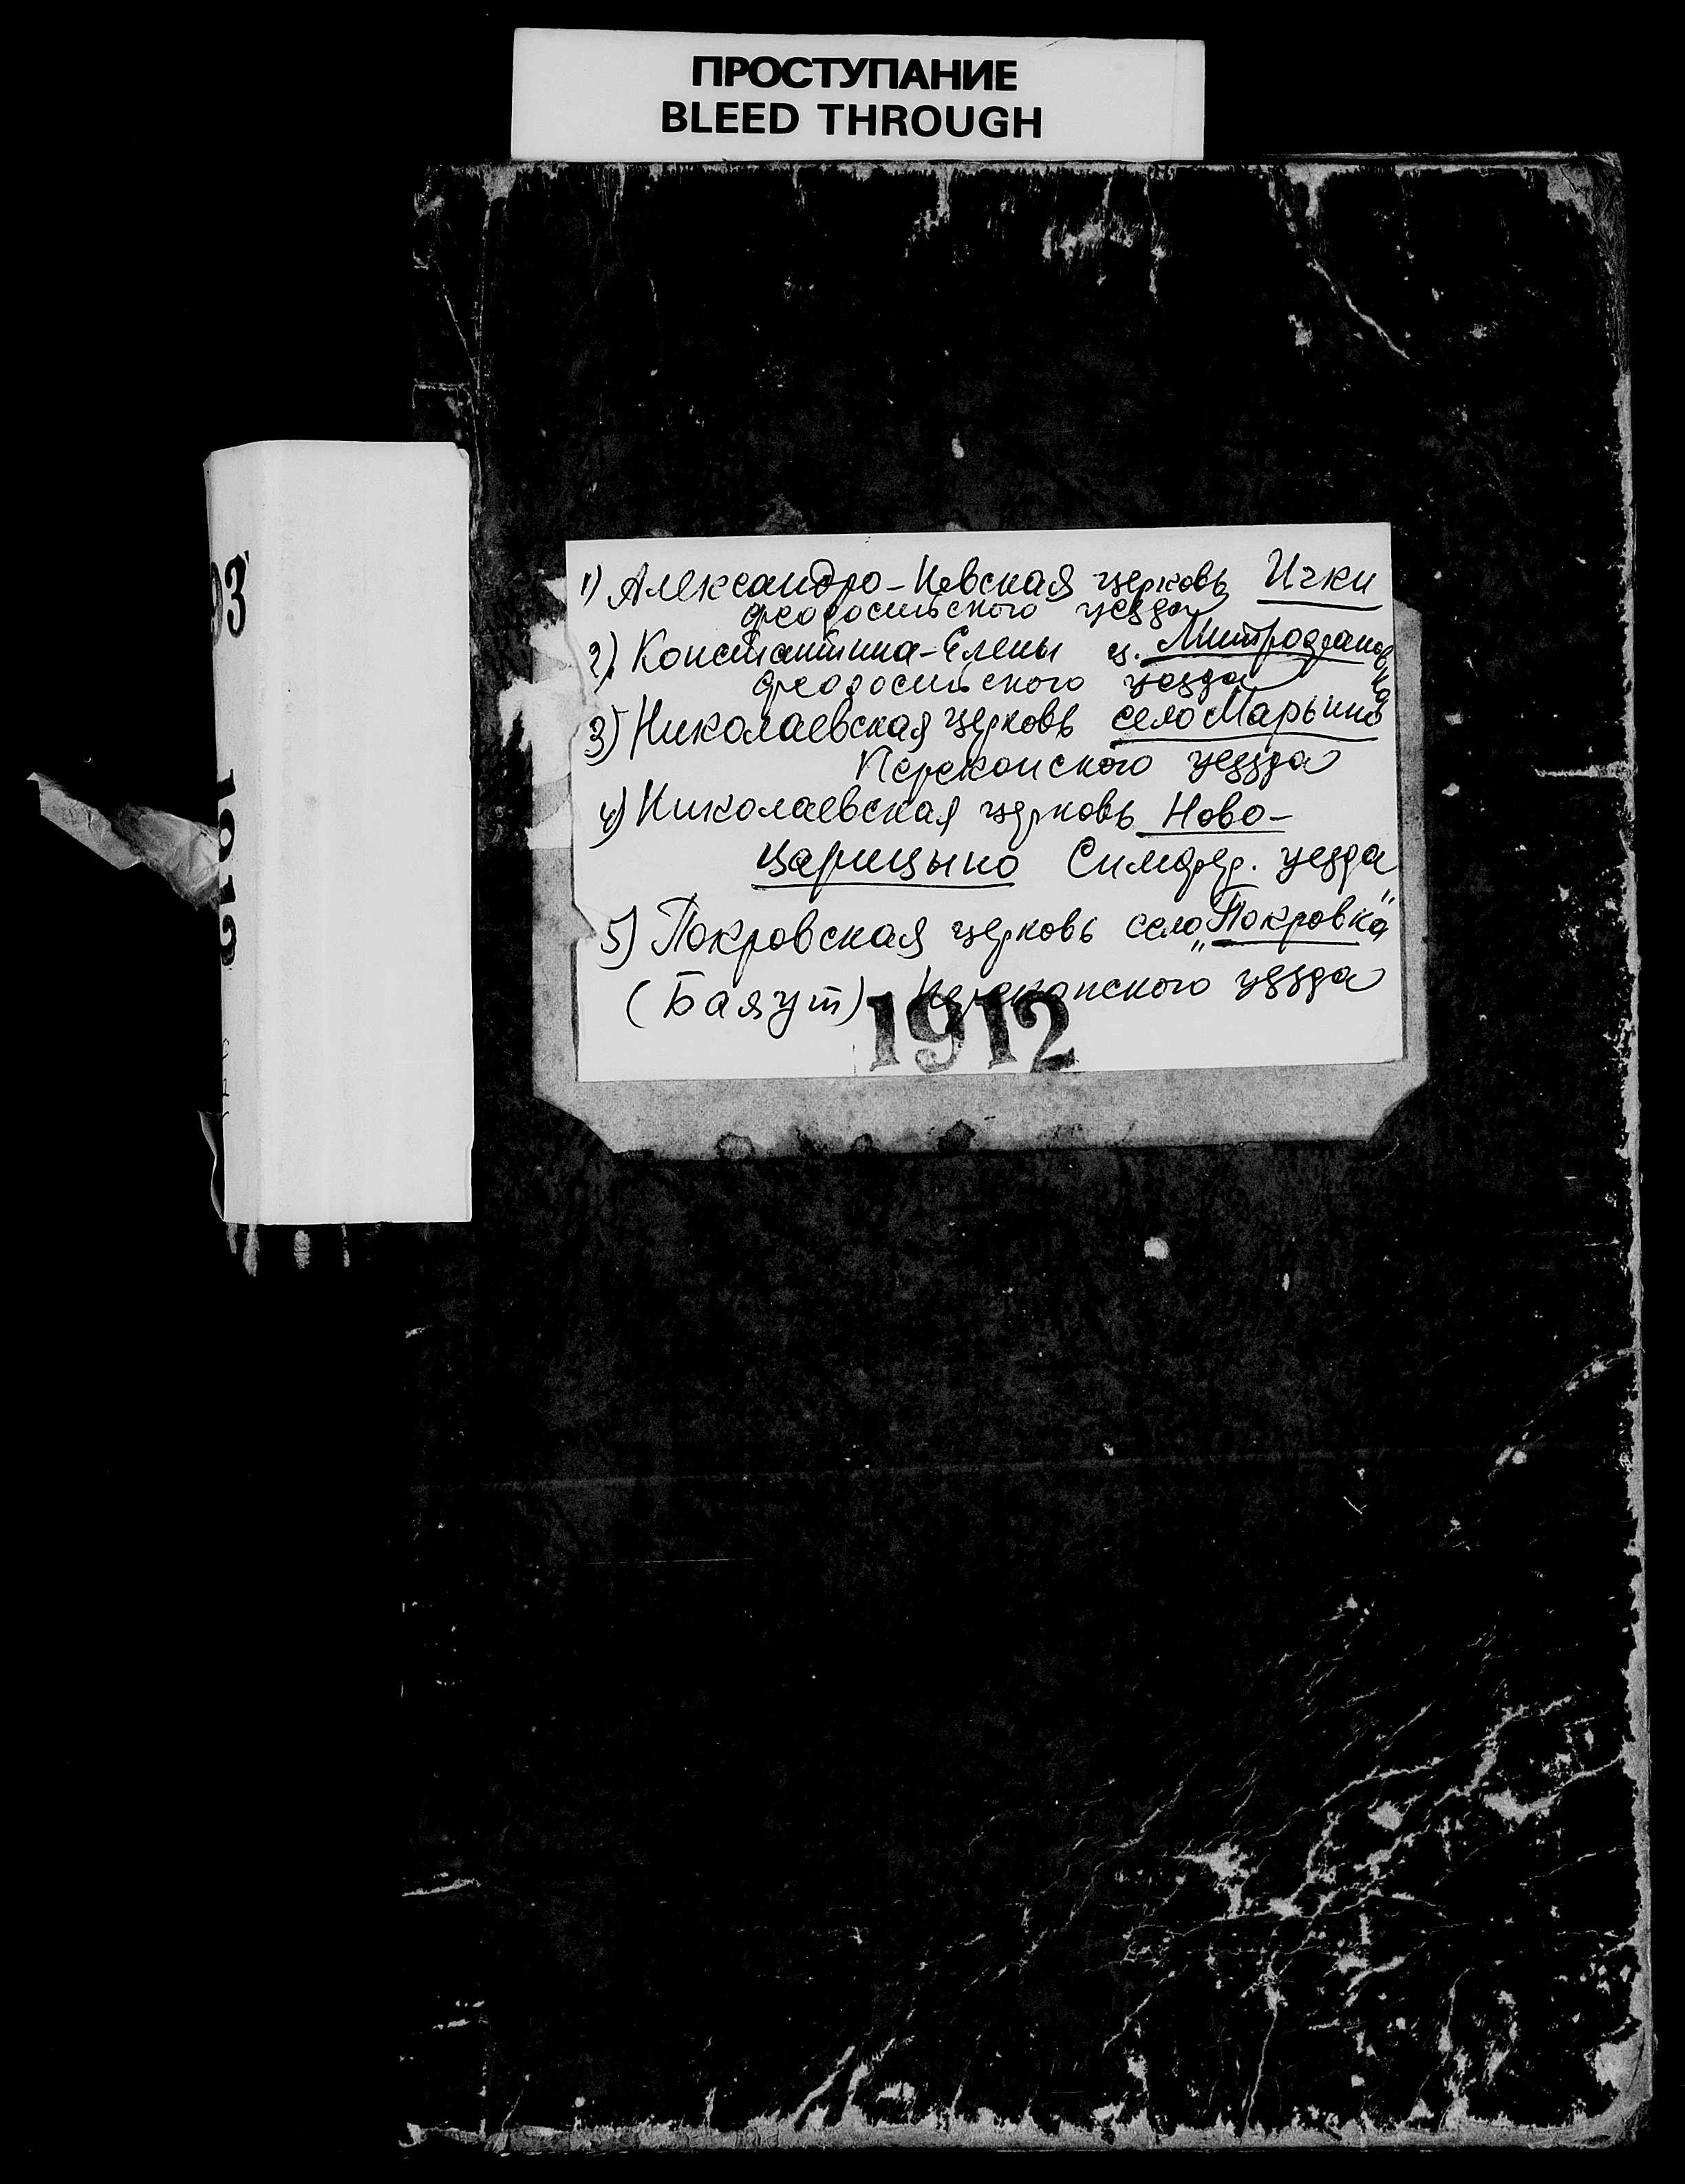 ПРОСТУПАНИЕ
BLEED THROUGH
1) Александро-Невская церковь Ички
феодосийского уезда
2) Константина-Елены ц. Митрофановка
феодосийского уезда
3) Николаевская церковь село Марьино
Перекопского уезда
4) Николаевская церковь Ново-
Царицыно Симфер. уезда
5) Покровская церковь село „Покровка"
(Баяут) Перекопского уезда
1912
93
1912